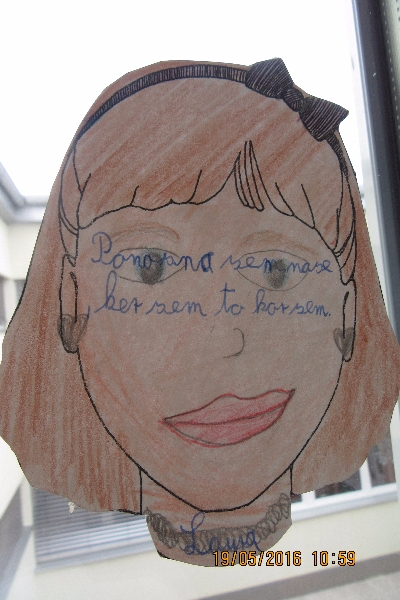 Ponosna sem nase
, ker sem to kar sem.
Laura
19/05/2016 10:59